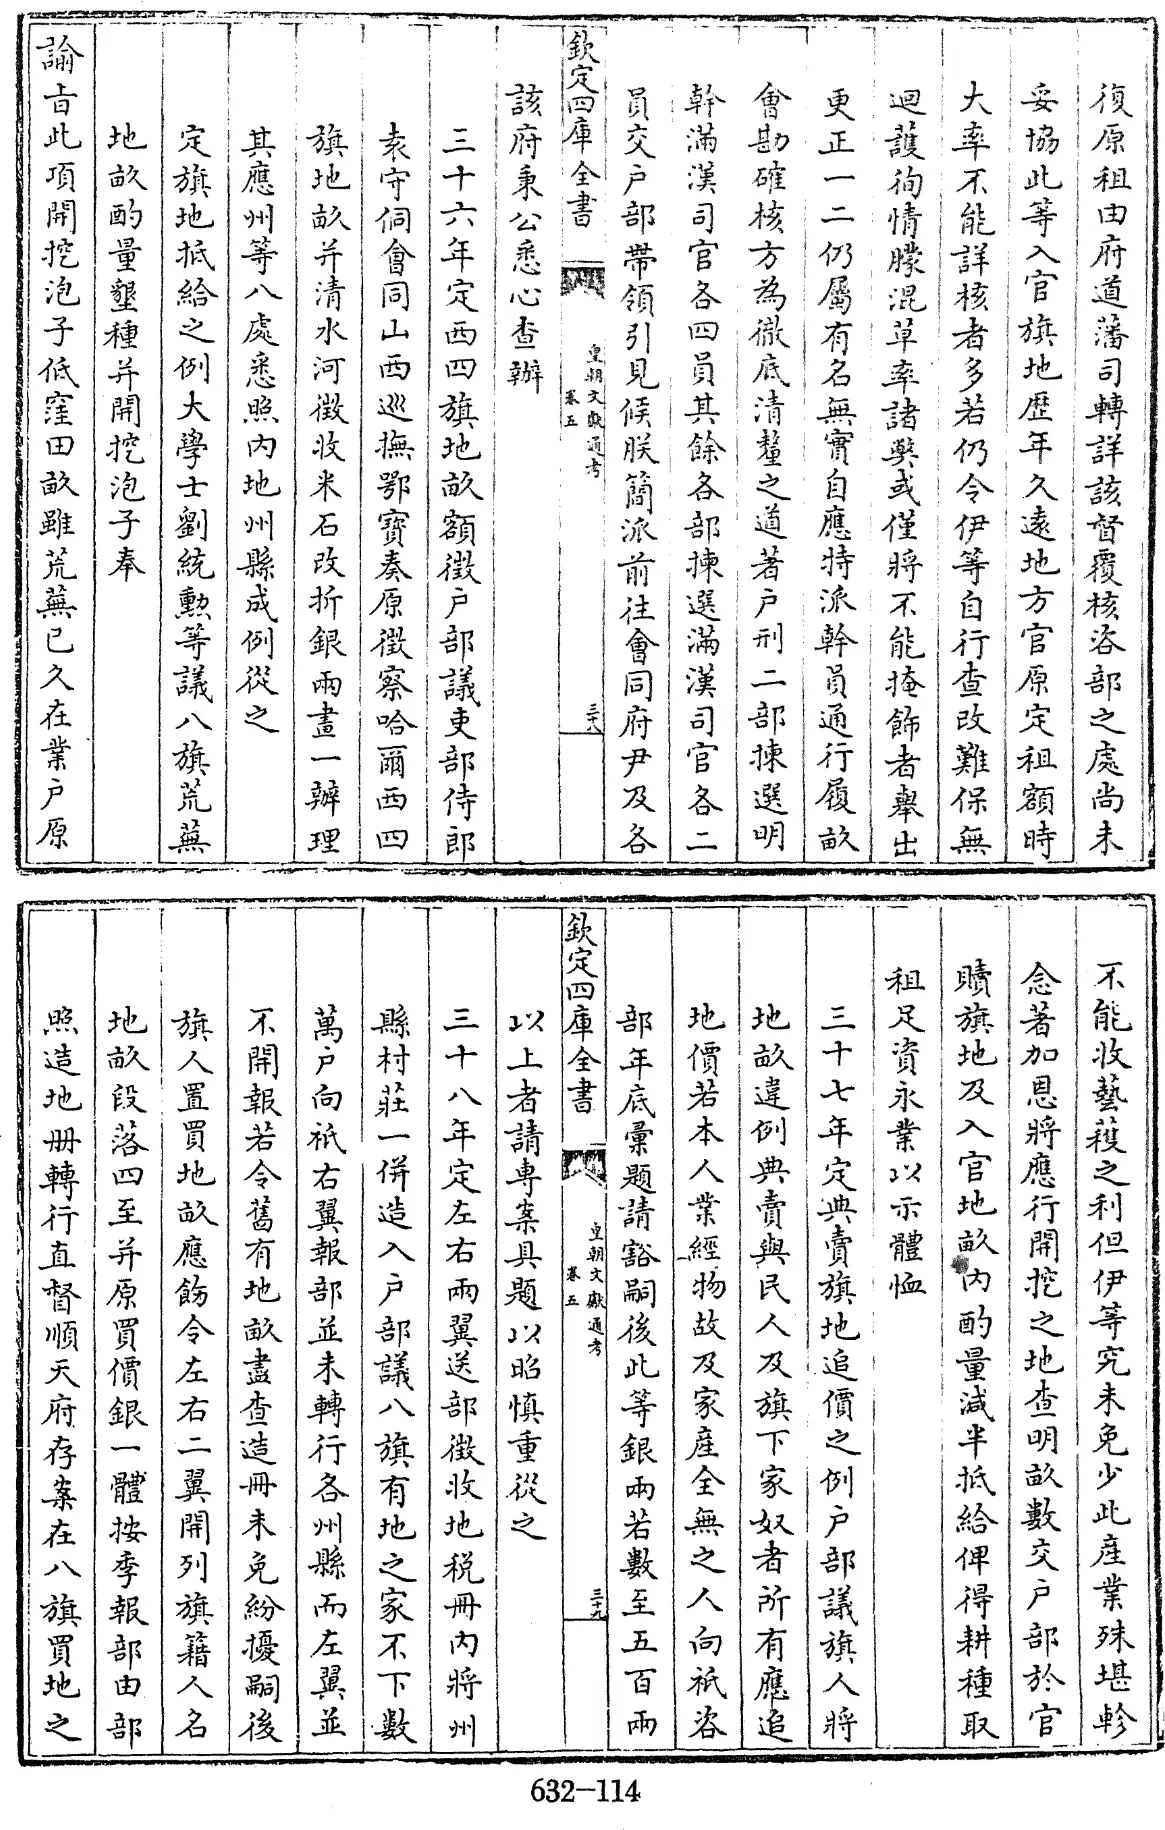 復原租由府道藩司轉詳該督覆核咨部之處尚未
妥協此等入官旗地歴年久遠地方官原定租額時
大率不能詳核者多若仍令伊等自行查改難保無
迴護徇情朦混草率諸弊或僅將不能掩飾者舉出
更正一二仍屬有名無實自應特派幹員通行履畝
會勘確核方為徹底清釐之道著户刑二部揀選明
幹滿漢司官各四員其餘各部揀選滿漢司官各二
員交户部帶領引見候朕簡派前往會同府尹及各
欽定四庫全書
皇朝文獻通考
卷五
三十八
該府秉公悉心查辦
三十六年定西四旗地畝額徵户部議吏部侍郎
袁守侗會同山西巡撫鄂寶奏原徵察哈爾西四
旗地畝并清水河徵收米石改折銀兩畫一辦理
其應州等八處悉照内地州縣成例從之
定旗地抵給之例大學士劉統勳等議八旗荒蕪
地畝酌量墾種并開挖泡子奉
諭旨此項開挖泡子低窪田畝雖荒蕪已久在業户原
不能收藝穫之利但伊等究未免少此産業殊堪軫
念著加恩將應行開挖之地查明畝數交户部於官
贖旗地及入官地畝内酌量減半抵給俾得耕種取
租足資永業以示體恤
三十七年定典賣旗地追價之例户部議旗人將
地畝違例典賣與民人及旗下家奴者所有應追
地價若本人業經物故及家産全無之人向祇咨
部年底彙題請豁嗣後此等銀兩若數至五百兩
欽定四庫全書
皇朝文獻通考
卷五
三十九
以上者請専案具題以昭慎重從之
三十八年定左右兩翼送部徵收地税冊内將州
縣村莊一併造入户部議八旗有地之家不下數
萬户向祇右翼報部並未轉行各州縣而左翼並
不開報若令舊有地畝盡查造冊未免紛擾嗣後
旗人置買地畝應飭令左右二翼開列旗籍人名
地畝段落四至并原買價銀一體按季報部由部
照造地冊轉行直督順天府存案在八旗買地之
632-114